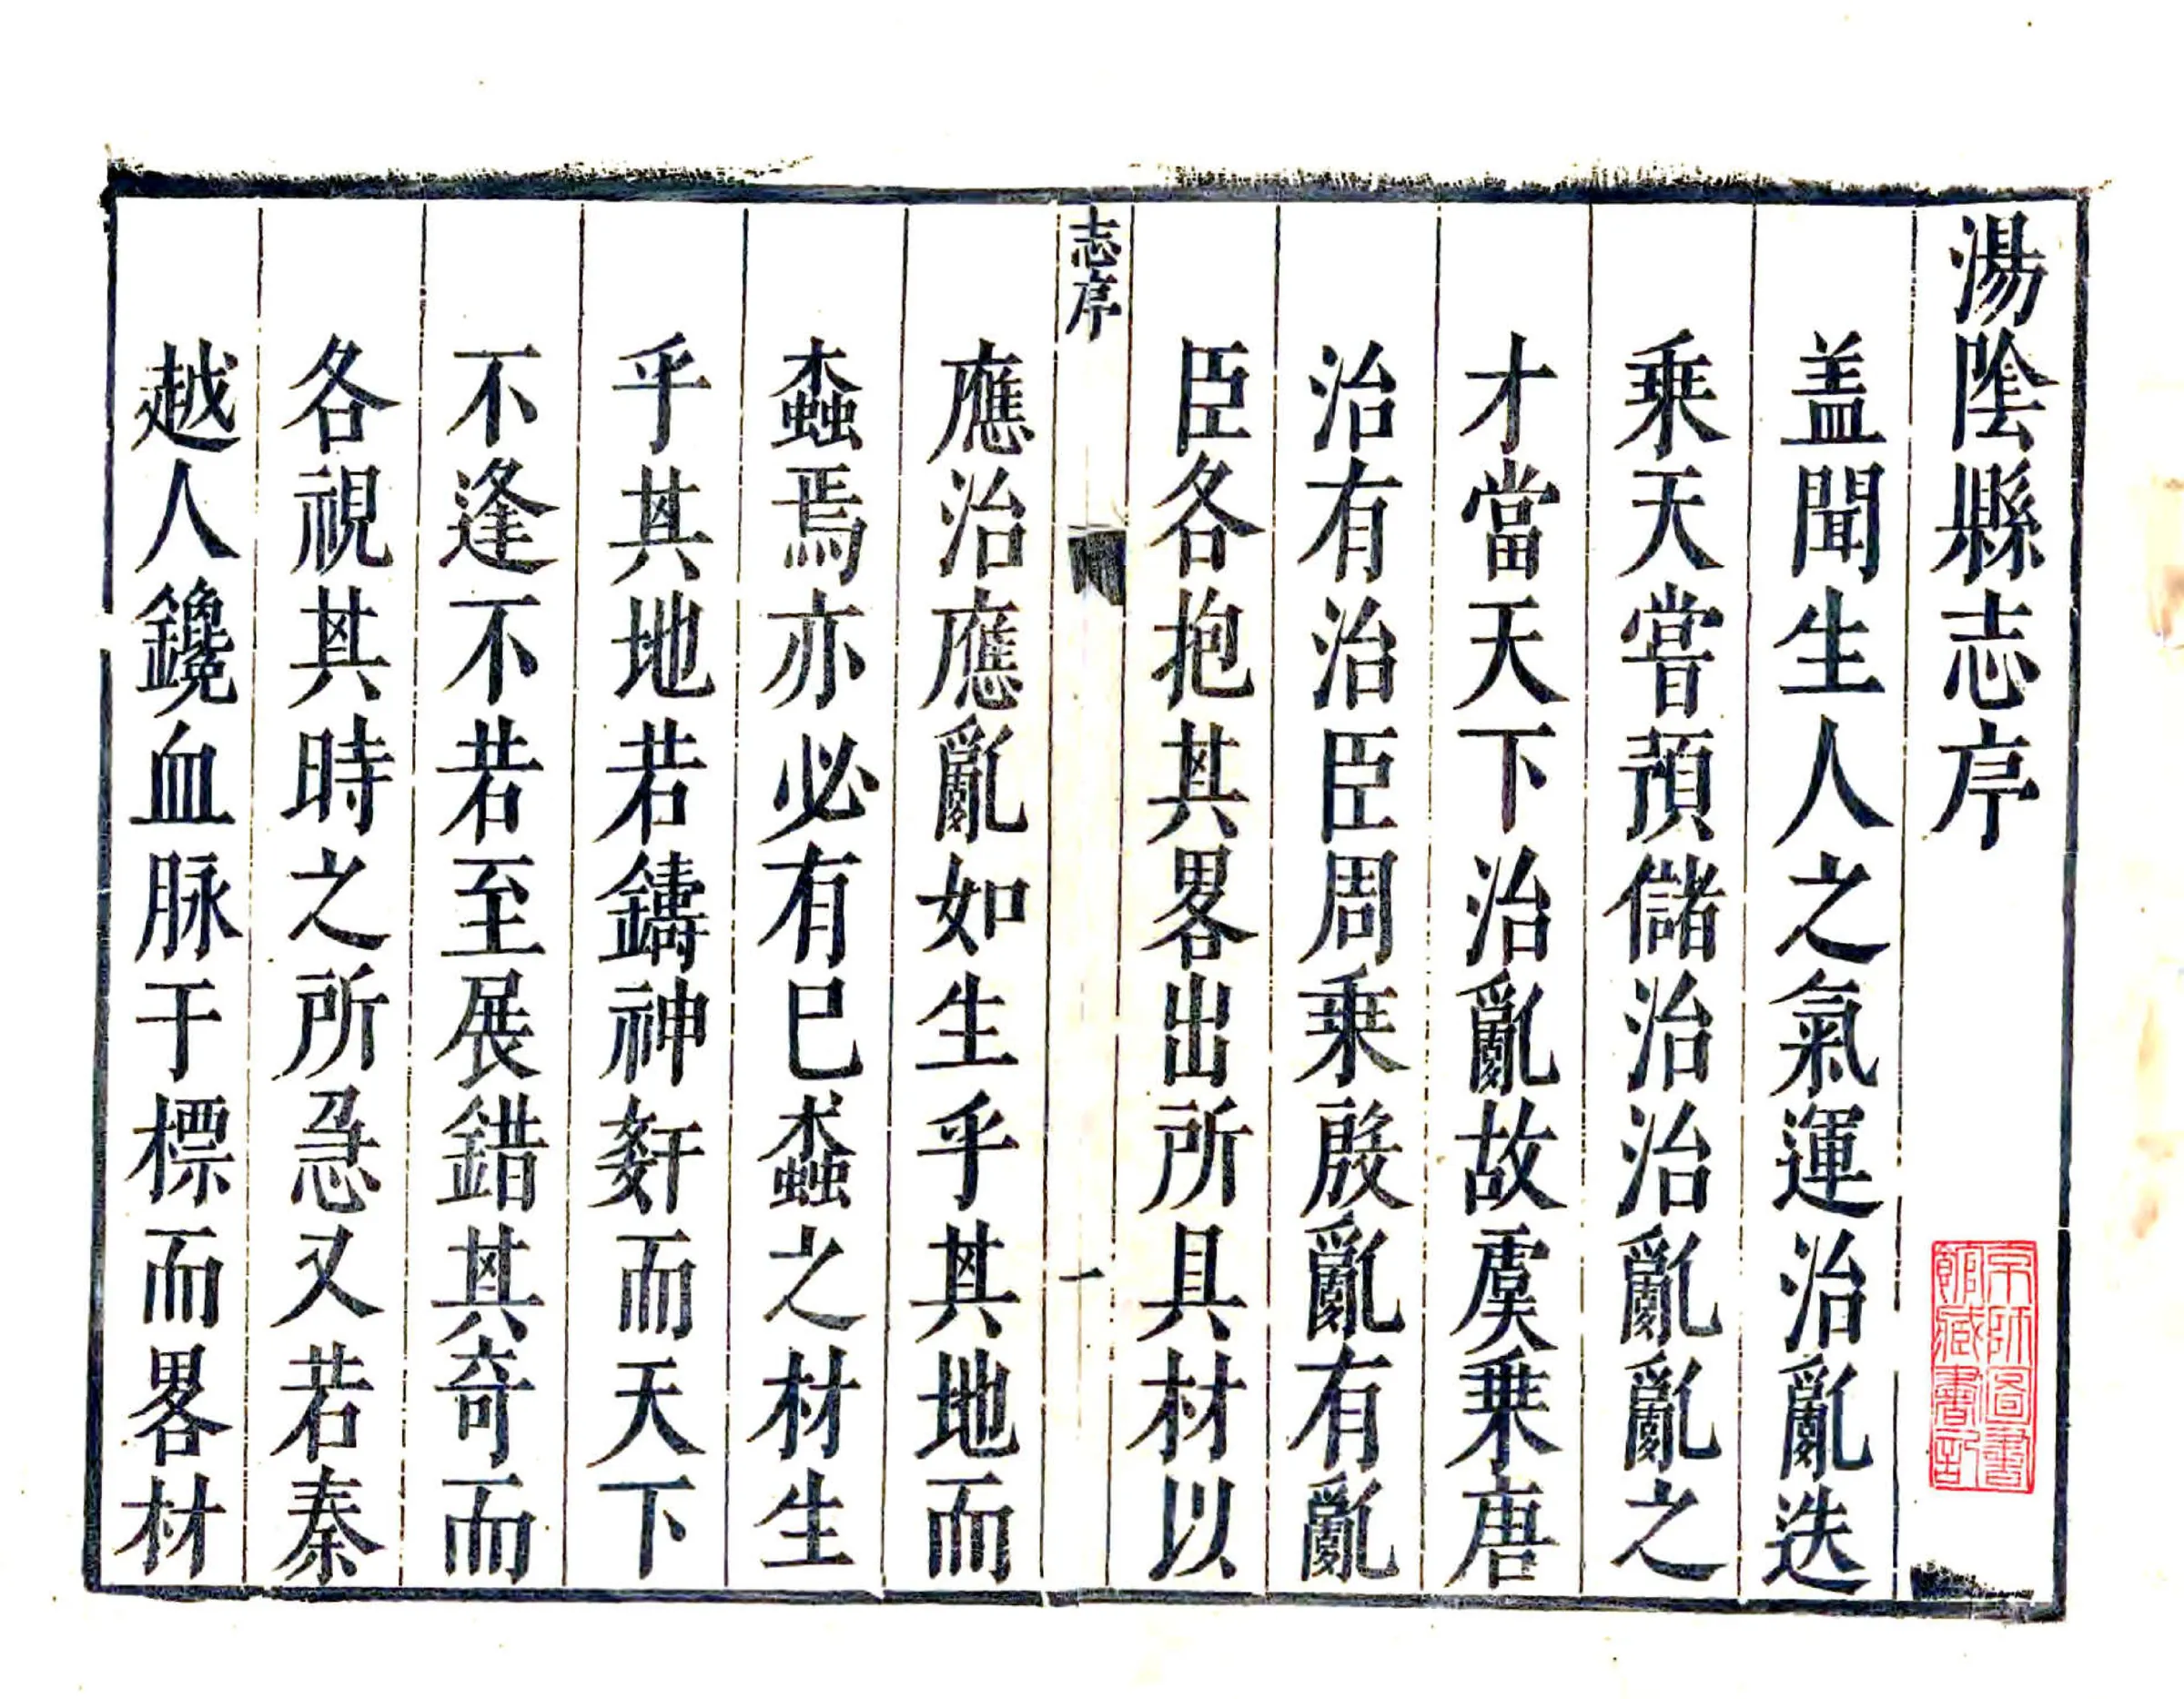 湯隂縣志序
盖聞生人之氣運治亂迭
乗天嘗預儲治治亂亂之
才當天下治亂故虞乗唐
治有治臣周乗殷亂有亂
臣各抱其畧出所具材以
志序
一
應治應亂如生乎其地而
螙焉亦必有已螙之材生
乎其地若鑄神姧而天下
不逢不若至展錯其奇而
各視其時之所急又若秦
越人鑱血脉于標而畧材
京師圖書
館藏書記